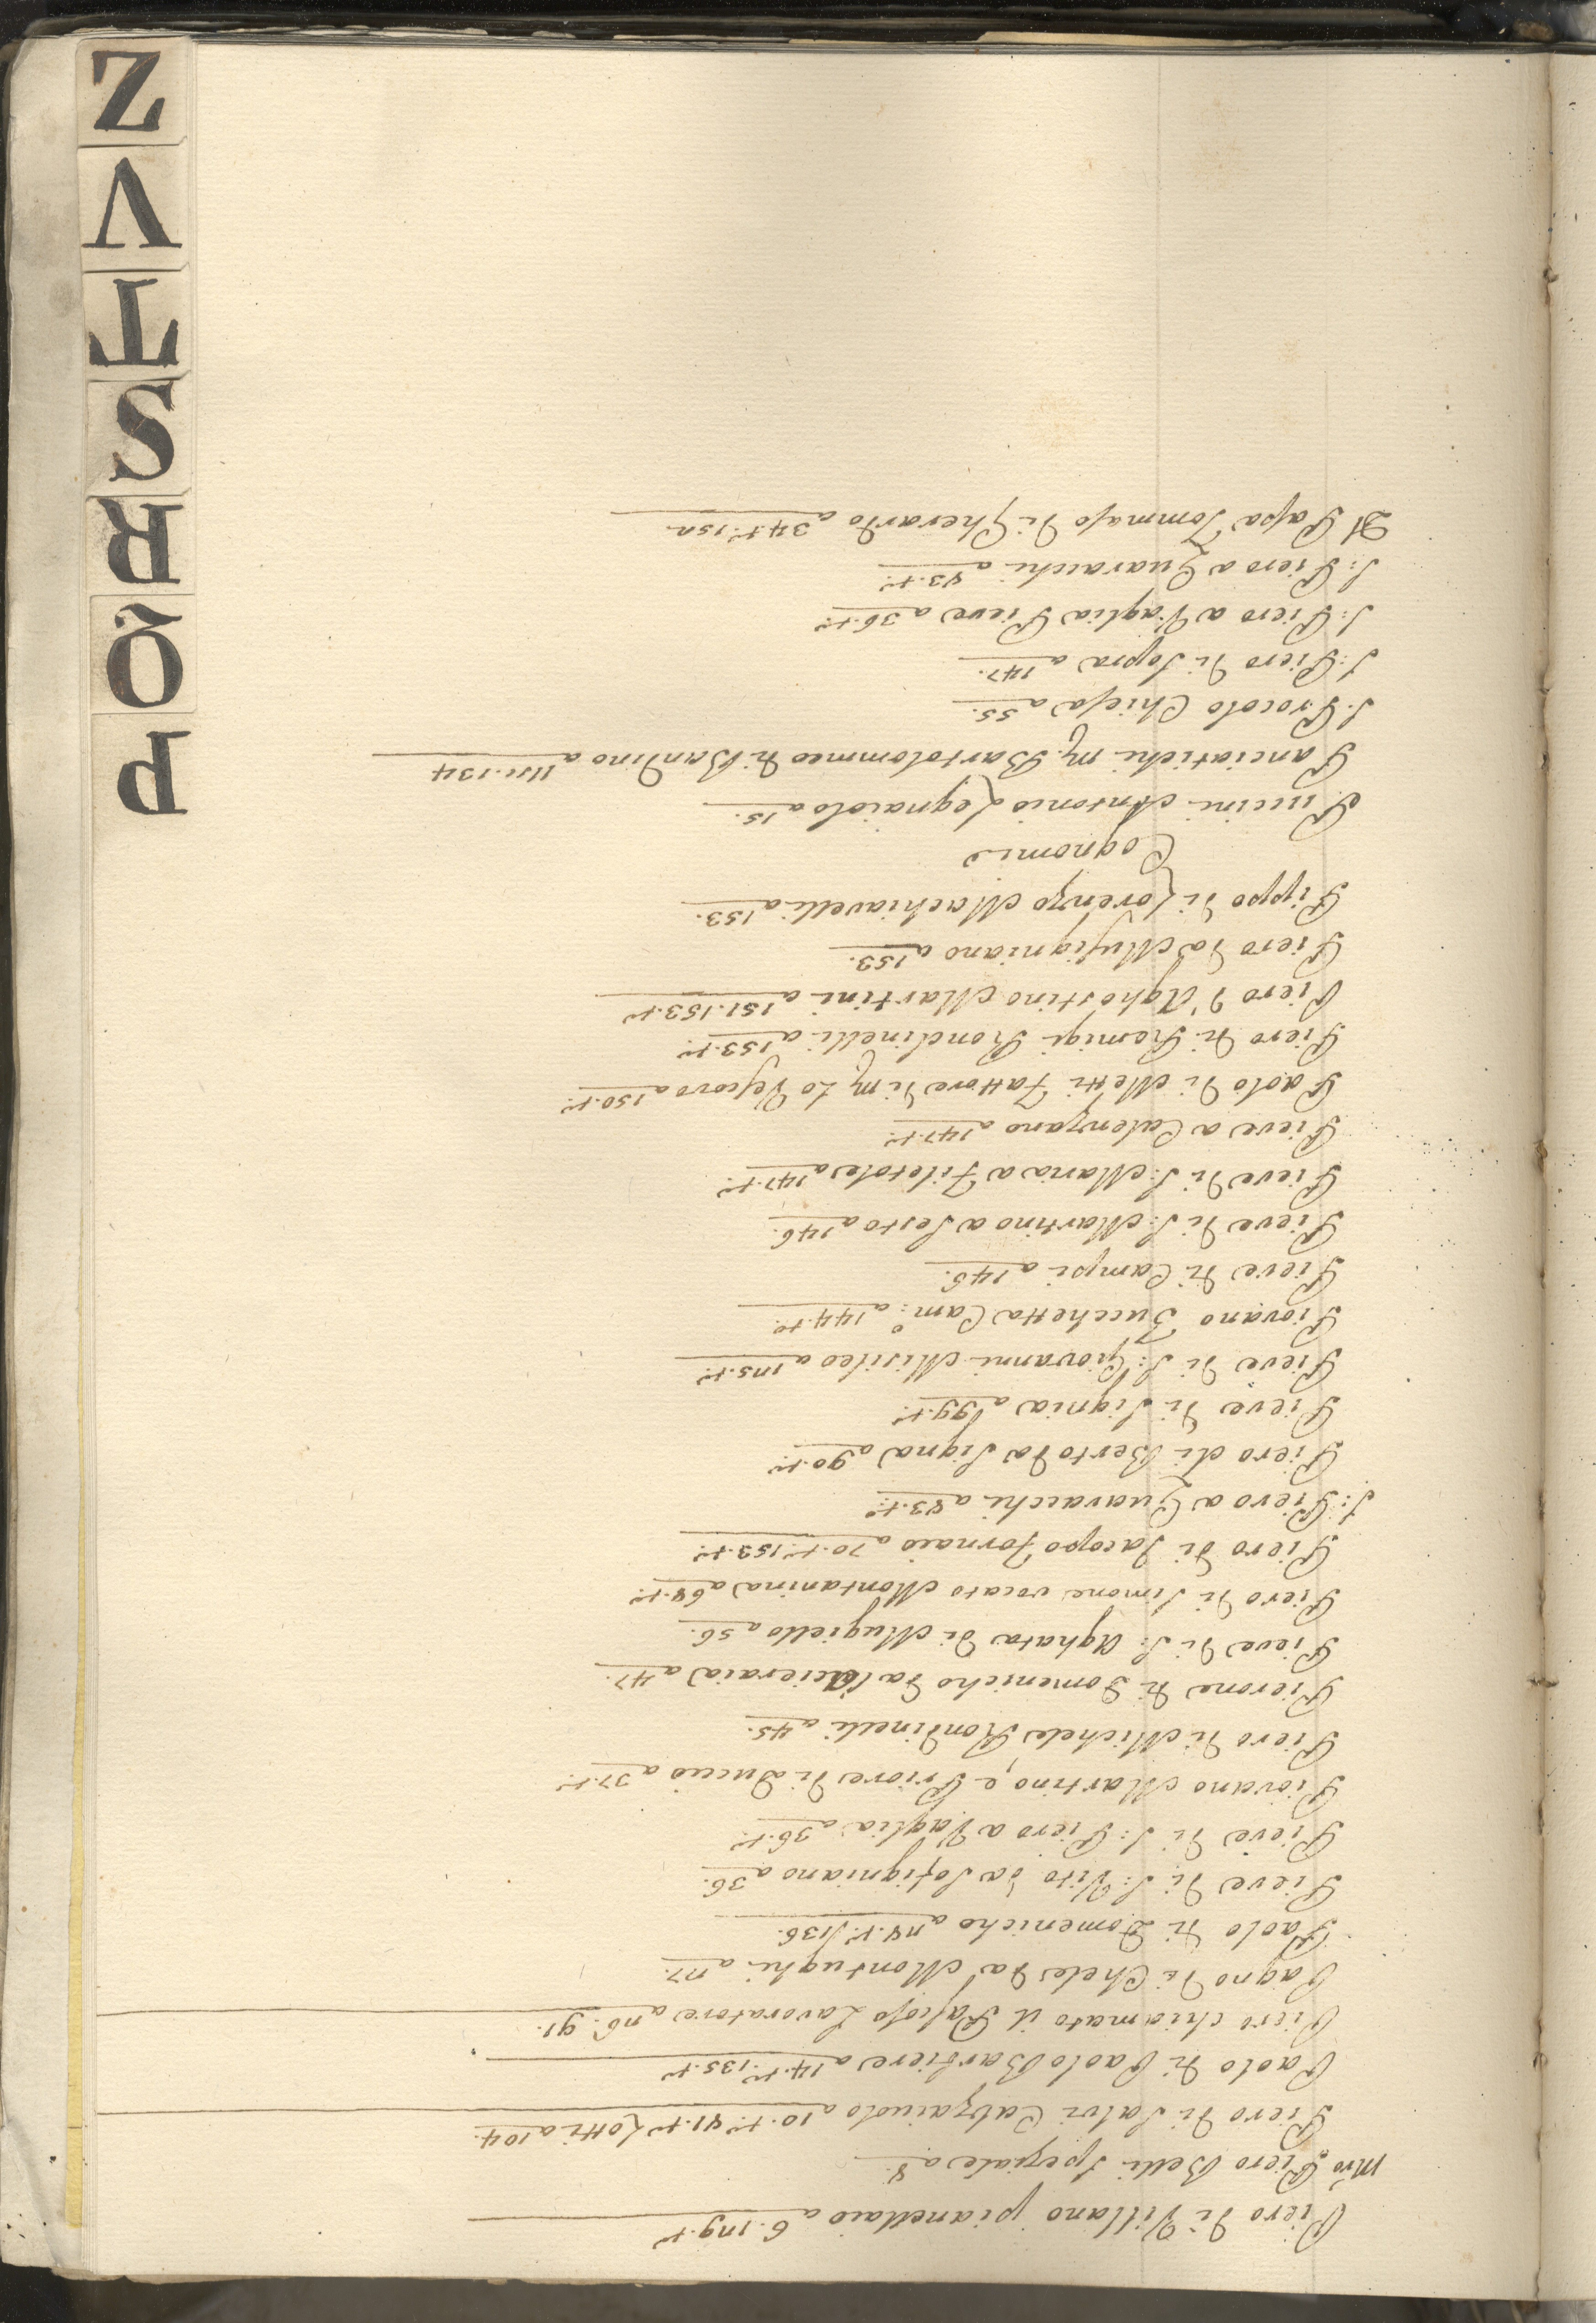 Piero di Villano pianellaio a 6. 129. tº
Mro Piero Belli Speziale a 8.
Piero di Salvi Calzaiuolo a 10. tº 41. tº Lotti a 104.
Paolo di Paolo Barbiere a 14. tº 135. tº
Piero chiamato il Lavoratore a 26. 91.
Pagno di Chele da Montughi a 27.
Paolo di Domenicho a 28. tº 136.
Pieve di S: Vito da Sofigniano a 36.
Pieve di S: Piero a Vaglia a 36. tº
Piovano Martino, e Priore di Duccio a 37. tº
Piero di Michele Rondinelli a 45.
Pierone di Domenicho da a 47.
Pieve di S: Aghata di Mugiello a 56.
Piero di Simone vocato Montanina a 68. tº
Piero di Jacopo Fornaio a 70. tº 153. tº
S: Piero a Quaracchi a 83. tº
Piero di Berto da Signa a 90. tº
Pieve di Signia a 99. tº
Pieve di S: Giovanni a 125. tº
Piovano Zucchetta Cam:º a 144. tº
Pieve di Campi a 146.
Pieve di S: Martino a Sesto a 146.
Pieve di S: Maria a Filetole a 147. tº
Pieve a Calenzano a 147. tº
Paolo di Metti Fattore di M Lo Vescovo a 150. tº
Piero di Remigi Rondinelli a 153. tº
Piero d'Aghostino Martini a 151. 153. tº
Piero da Musigniano a 153.
Pippo di Lorenzo Machiavelli a 153.
Cognomi
Puccini Antonio Legnaiolo a 15.
Panciatichi M. Bartolommeo di Bandino a 112. 134
S. Procolo Chiesa a 55.
S: Piero di Sopra a 147.
S: Piero a Vaglia Pieve a 36. tº
S: Piero a Quaracchi a 83. tº
Papa Tommaso di Gherardo a 34. tº 152.
P
Q
R
S
T
V
Z